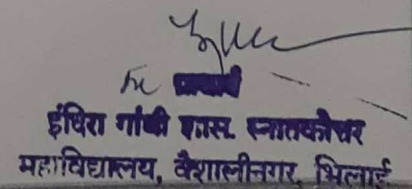 प्राचार्य
इंदिरा गांधी शास. स्नातकोत्तर
महाविद्यालय, वैशालीनगर, भिलाई